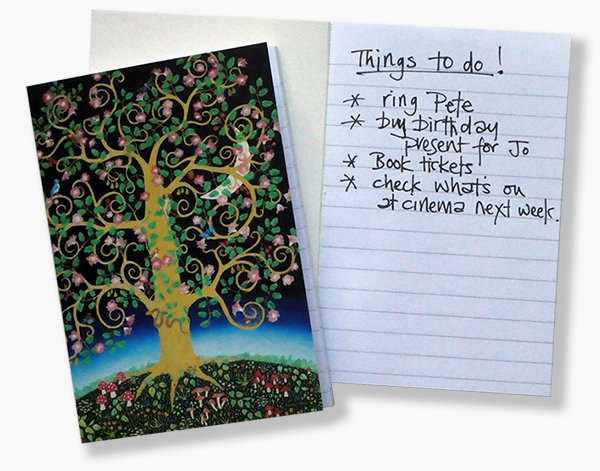 Things to do!
* ring Pete
* buy birthday
present for Jo
* Book tickets
* check what's on
at cinema next week.